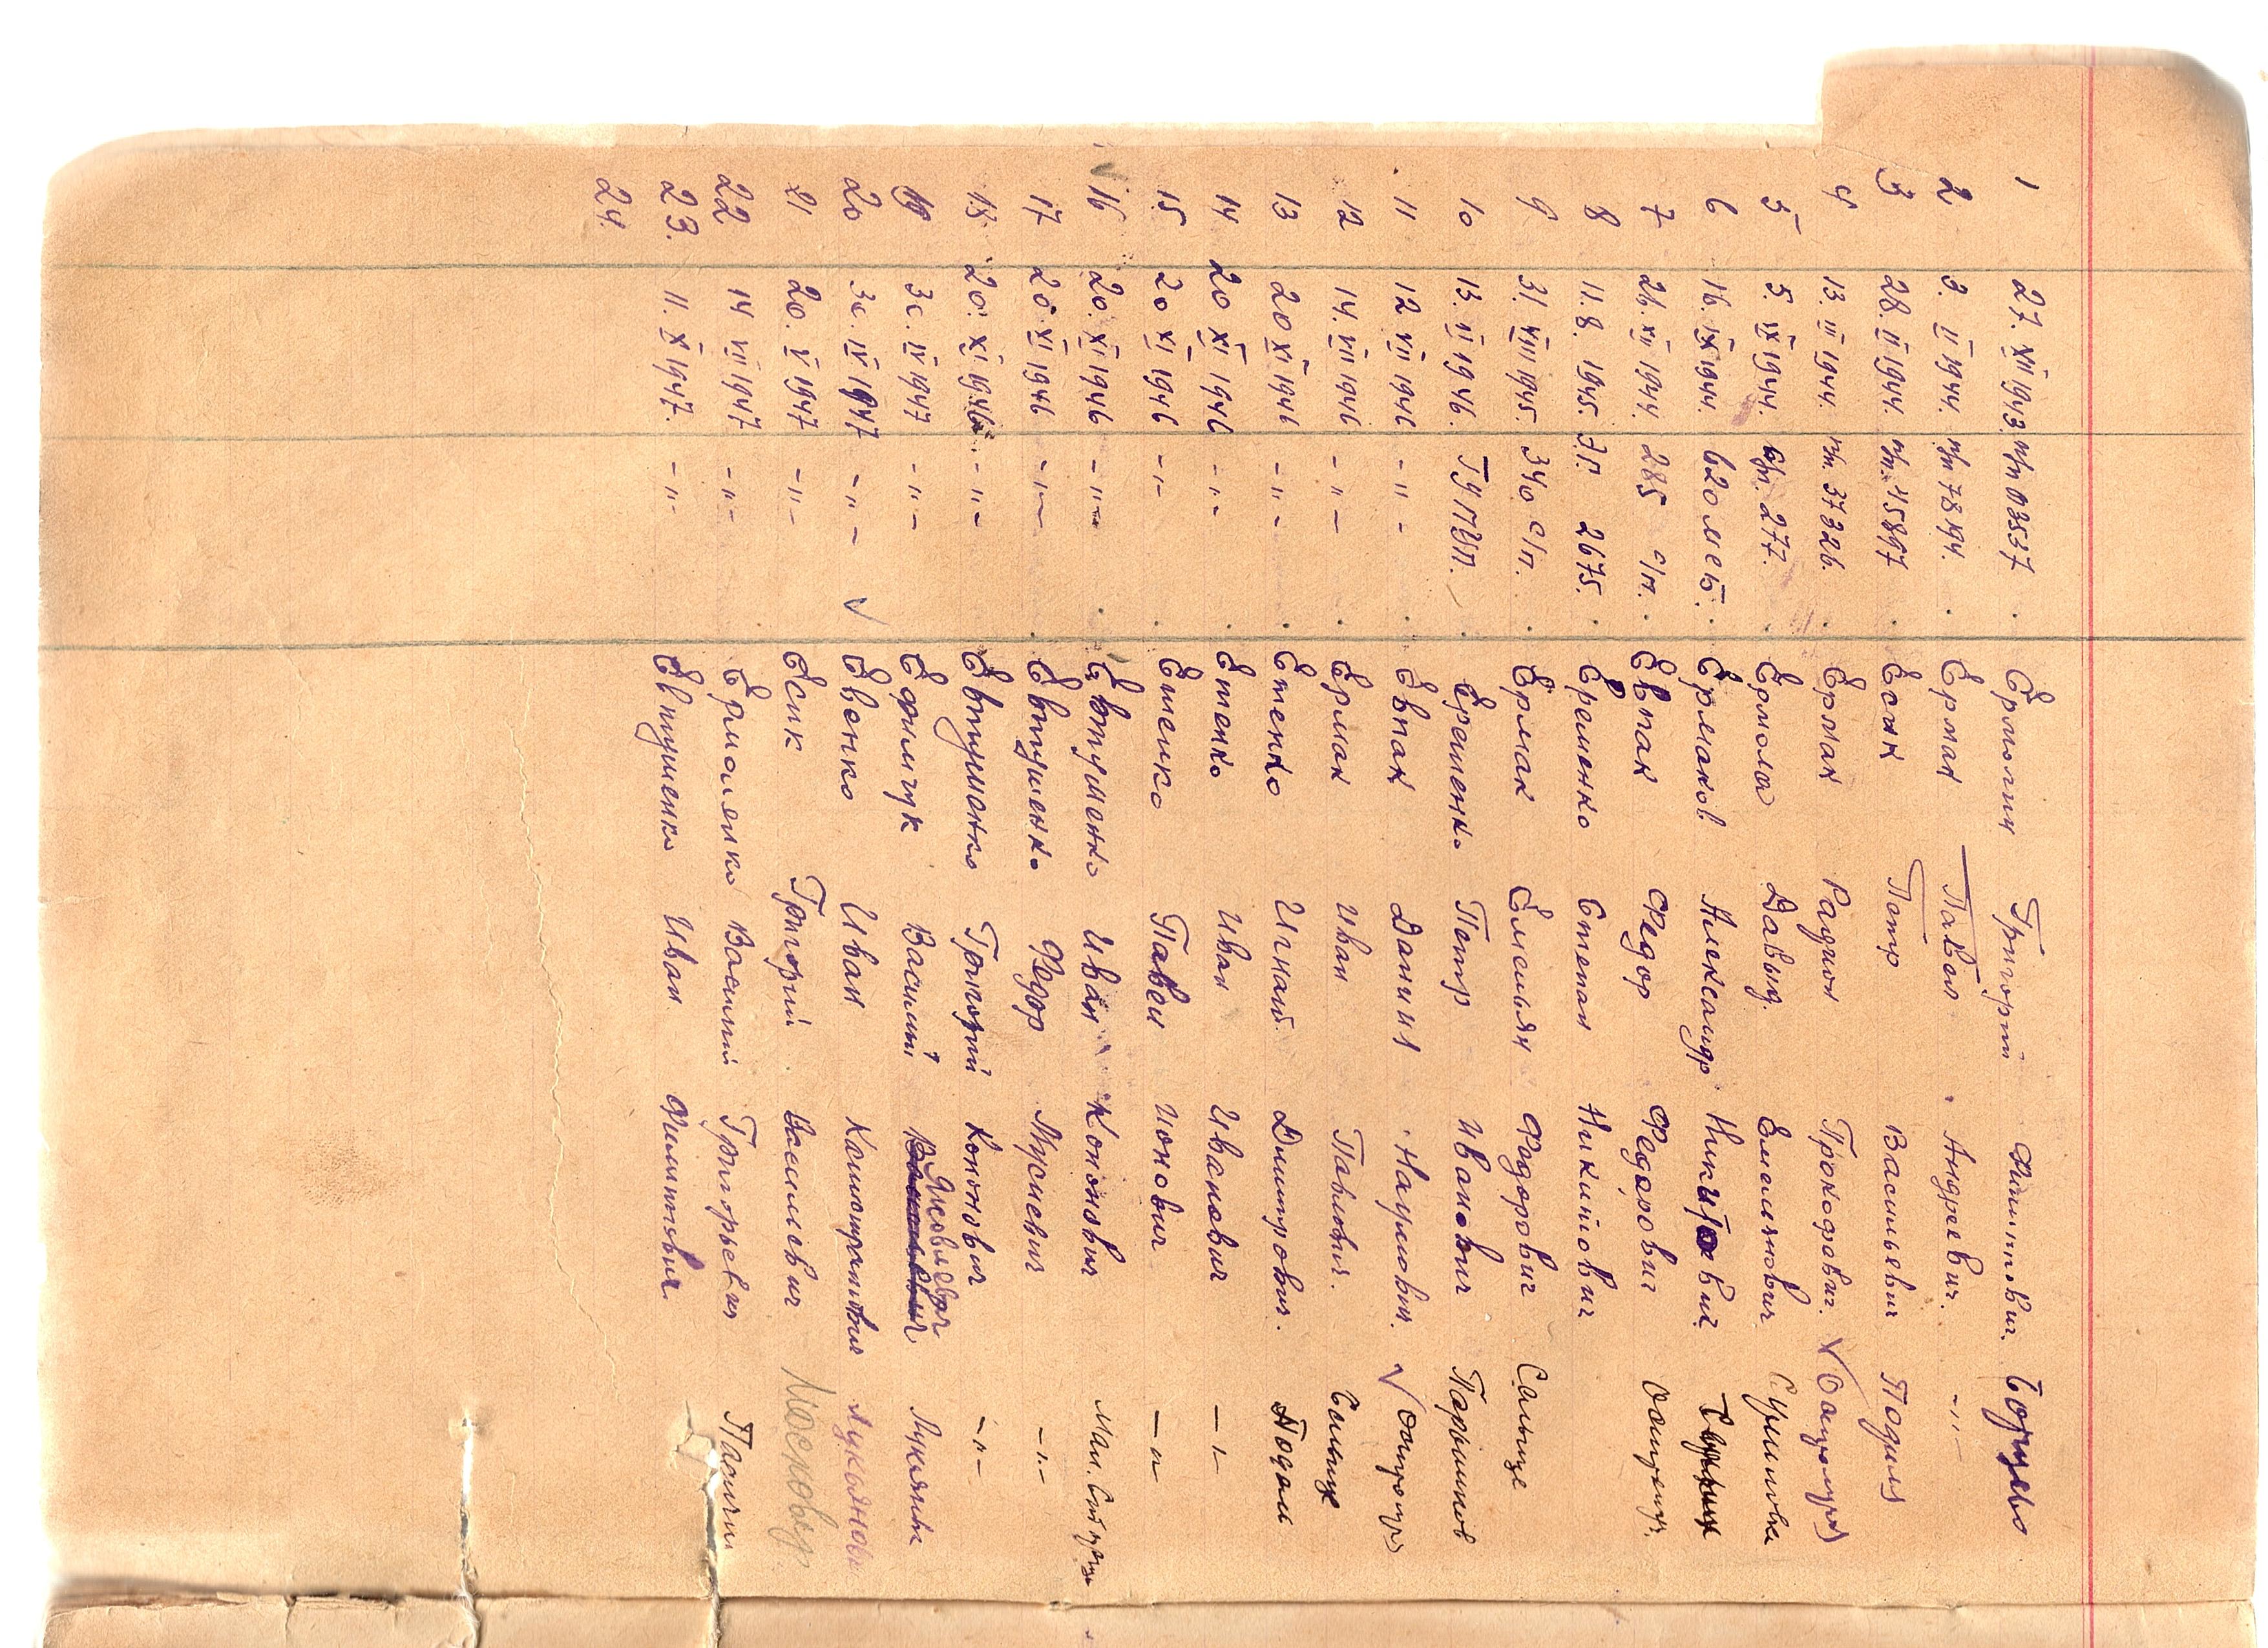 1 27. XII 1943. п/п 03537 Ермолич Григорий Филиппович. Борщево
2 3. II 1944. п/п 78194. Ермак Павел Андреевич. -"-
3 28. II 1944. п/п. 45897 Есик Петр Васильевич Подил
4 13. III 1944. п/п. 37326. Ермак Радион Прокофович.
5 5. IX 1944. п/п. 277. Ермола Давыд Емельянович Сушиловка
6 16. IX 1944. 620 Ермаков Александр Никитович.
7 26. XII 1944. 285 с/п. Евпак Федор Федорович
8 11. 8. 1945. ЭГ 2675. Еременко Степан Никитович
9 31. VIII 1945. 340 с/п. Ермак Емельян Федорович Селище
10 13. II 1946. ГУПВП. Ерешенко Петр Иванович Паришков
11 12 VII 1946 -"- Евпак Данил Наумович.
12 14. VII 1946 -"- Ермак Иван Павлович. Селище
13 20 XI 1946 -"- Етенко Игнат Дмитрович. Подол
14 20 XI 1946 -"- Етенко Иван Иванович -"-
15 20 XI 1946 -"- Етенко Павел Ионович -"-
16 20. XI 1946 -"- Евтушенко Иван Кононович Мал.
17 20. XI 1946 -"- Евтушенко Федор Мусиевич -"-
18 20. XI 1946. -"- Евтушенко Григорий Кононович -"-
19 30. IV 1947 -"- Ефимчук Василий Яковлевич
20 30. IV 1947 -"- Евенко Иван
21 20. V 1947 -"- Есик Григорий Васильевич
22 14 VII 1947 -"- Ермоленко Василий Григорьевич
23. 11. X 1947. -"- Евтушенко Иван Филиппович.
24.